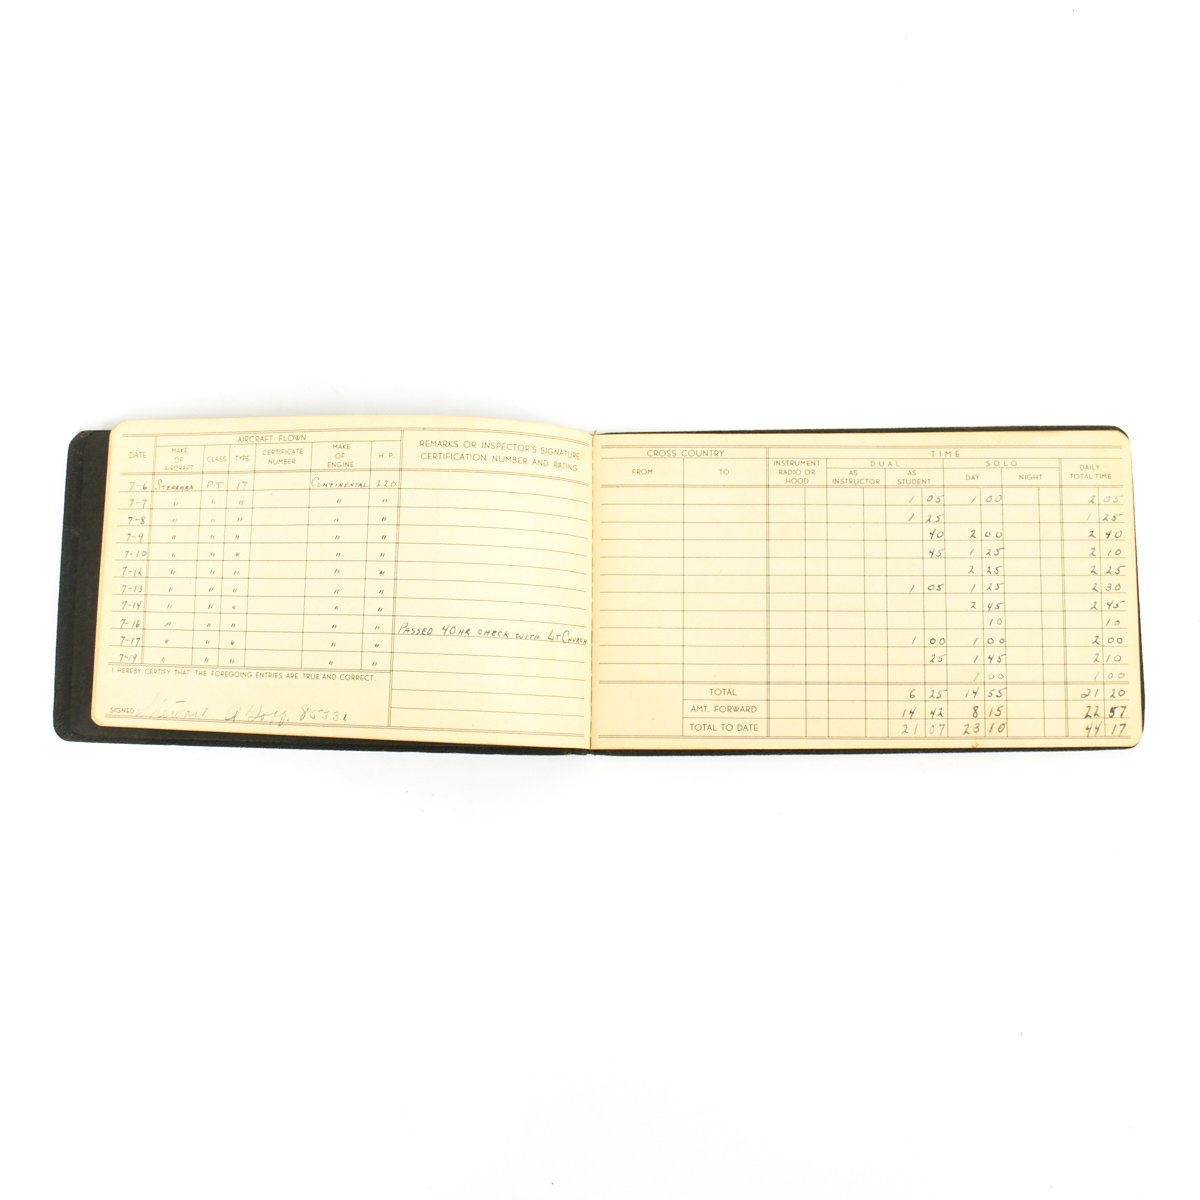 AIRCRAFT FLOWN
DATE MAKE OF AIRCRAFT CLASS TYPE CERTIFICATE NUMBER MAKE OF ENGINE H. P. REMARKS OR INSPECTOR'S SIGNATURE CERTIFICATION NUMBER AND RATING
7-6 STEARMAN PT 17 CONTINENTAL 220
7-7 " " " " "
7-8 " " " " "
7-9 " " " " "
7-10 " " " " "
7-12 " " " " "
7-13 " " " " "
7-14 " " " " "
7-16 " " " " " PASSED 40 HR CHECK WITH LT CHURCH
7-17 " " " " "
7-19 " " " " "
I HEREBY CERTIFY THAT THE FOREGOING ENTRIES ARE TRUE AND CORRECT.
SIGNED
CROSS COUNTRY TIME
FROM TO INSTRUMENT RADIO OR HOOD DUAL SOLO DAILY TOTAL TIME
AS INSTRUCTOR AS STUDENT DAY NIGHT
1 05 1 00 2 05
1 25 1 25
40 2 00 2 40
45 1 25 2 10
2 25 2 25
1 05 1 25 2 30
2 45 2 45
10 10
1 00 1 00 2 00
25 1 45 2 10
1 00 1 00
TOTAL 6 25 14 55 21 20
AMT. FORWARD 14 42 8 15 22 57
TOTAL TO DATE 21 07 23 10 44 17